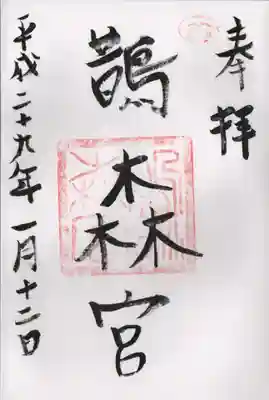 奉拝
鵲森宮
平成二十九年一月十二日